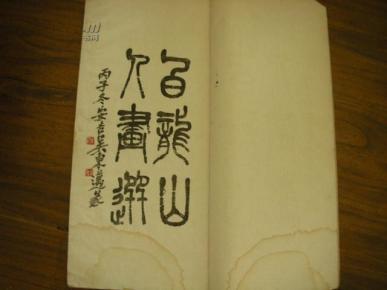 白龍山
人畫選
丙子冬安吉吳東邁篆